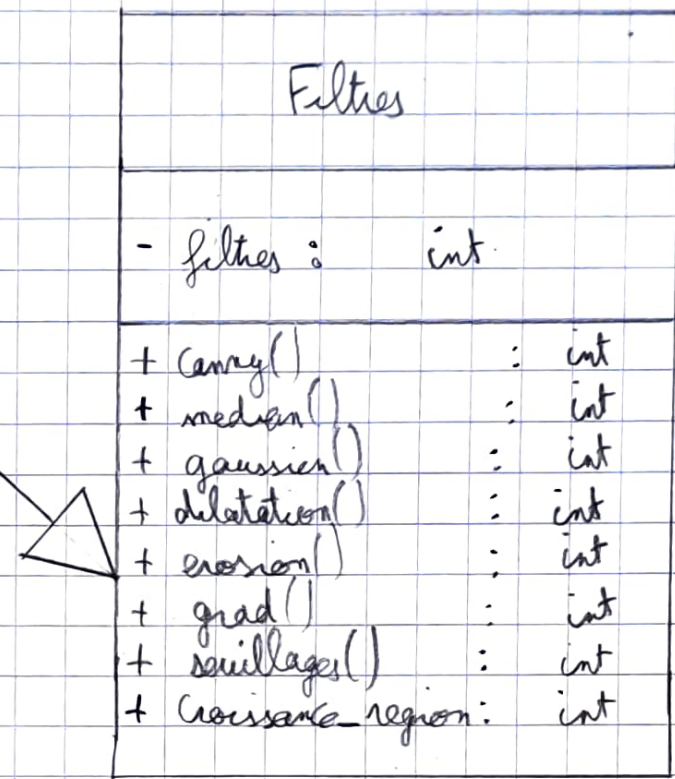 Filtres
- filtres : int
+ Canny() : int
+ median() : int
+ gaussien() : int
+ dilatation() : int
+ erosion() : int
+ grad() : int
+ seuillages() : int
+ Croissance_region : int